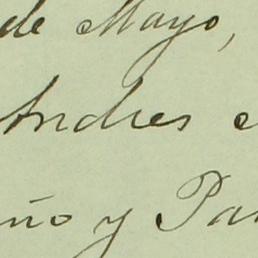 de Mayo,
Andres e
ño y Pa